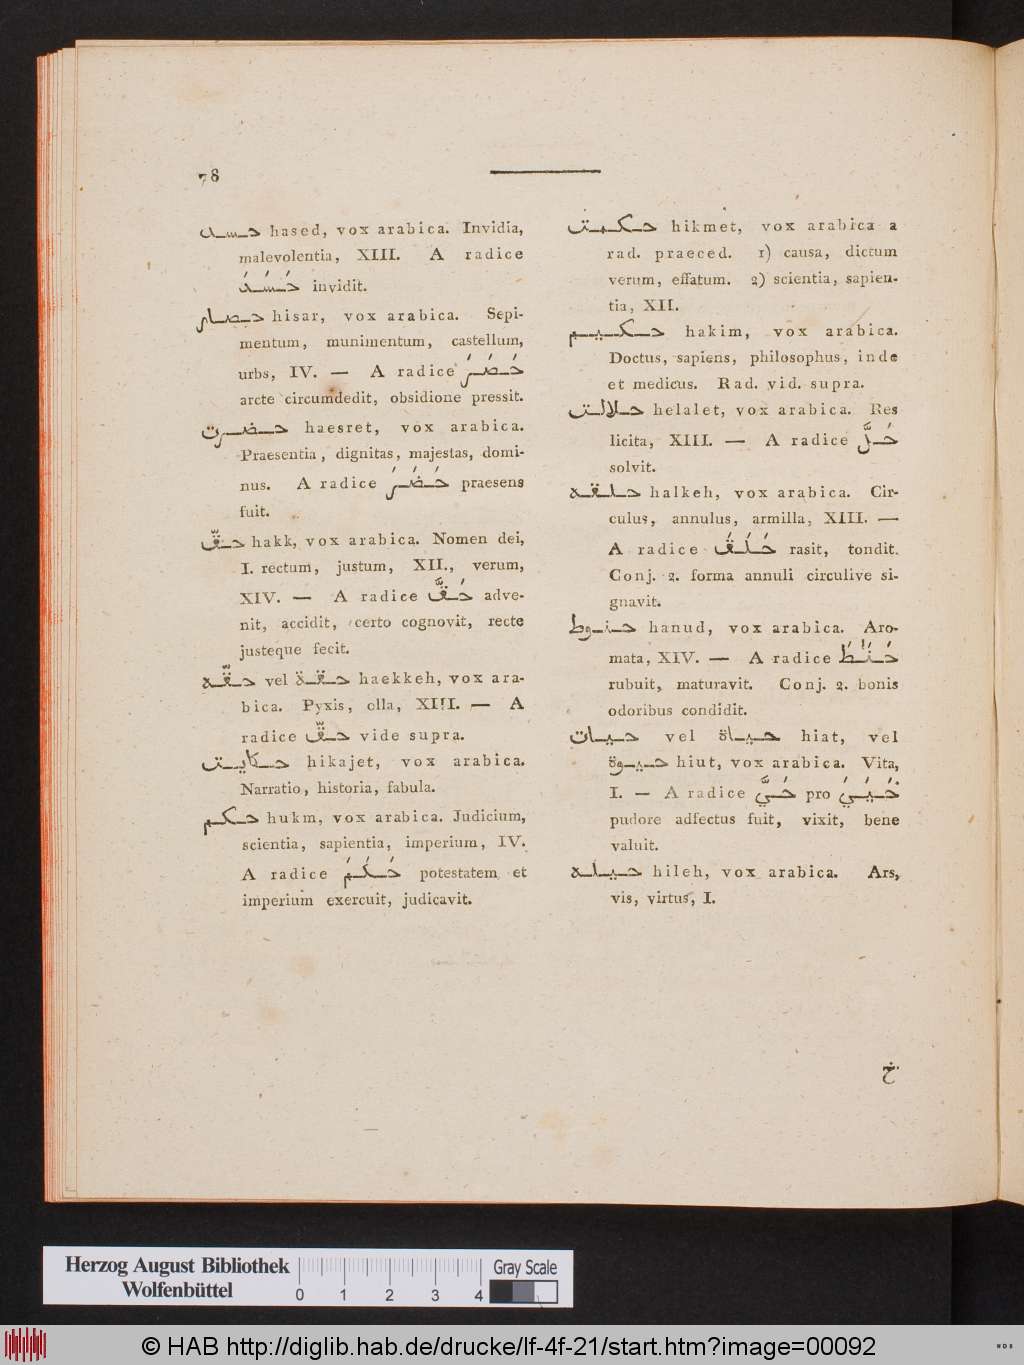 78
حسد hased, vox arabica. Invidia,
malevolentia, XIII. A radice
حَسَدَ invidit.
حصار hisar, vox arabica. Sepi-
mentum, munimentum, castellum,
urbs, IV. — A radice حَصَرَ
arcte circumdedit, obsidione pressit.
حضرت haesret, vox arabica.
Praesentia, dignitas, majestas, domi-
nus. A radice حَضَرَ praesens
fuit.
حقّ hakk, vox arabica. Nomen dei,
I. rectum, justum, XII., verum,
XIV. — A radice حَقَّ adve-
nit, accidit, certo cognovit, recte
justeque fecit.
حقّه vel حقة haekkeh, vox ara-
bica. Pyxis, olla, XIII. — A
radice حقّ vide supra.
حكايت hikajet, vox arabica.
Narratio, historia, fabula.
حكم hukm, vox arabica. Judicium,
scientia, sapientia, imperium, IV.
A radice حَكَمَ potestatem et
imperium exercuit, judicavit.
حكمت hikmet, vox arabica a
rad. praeced. 1) causa, dictum
verum, effatum. 2) scientia, sapien-
tia, XII.
حكيم hakim, vox arabica.
Doctus, sapiens, philosophus, inde
et medicus. Rad. vid. supra.
حلالت helalet, vox arabica. Res
licita, XIII. — A radice حَلَّ
solvit.
حلقه halkeh, vox arabica. Cir-
culus, annulus, armilla, XIII. —
A radice حَلَقَ rasit, tondit.
Conj. 2. forma annuli circulive si-
gnavit.
حنوط hanud, vox arabica. Aro-
mata, XIV. — A radice حَنَطَ
rubuit, maturavit. Conj. 2. bonis
odoribus condidit.
حيات vel حياة hiat, vel
حيوة hiut, vox arabica. Vita,
I. — A radice حَيَّ pro حَيَيَ
pudore adfectus fuit, vixit, bene
valuit.
حيله hileh, vox arabica. Ars,
vis, virtus, I.
خ
Herzog August Bibliothek
Wolfenbüttel
0 1 2 3 4
Gray Scale
© HAB http://diglib.hab.de/drucke/lf-4f-21/start.htm?image=00092